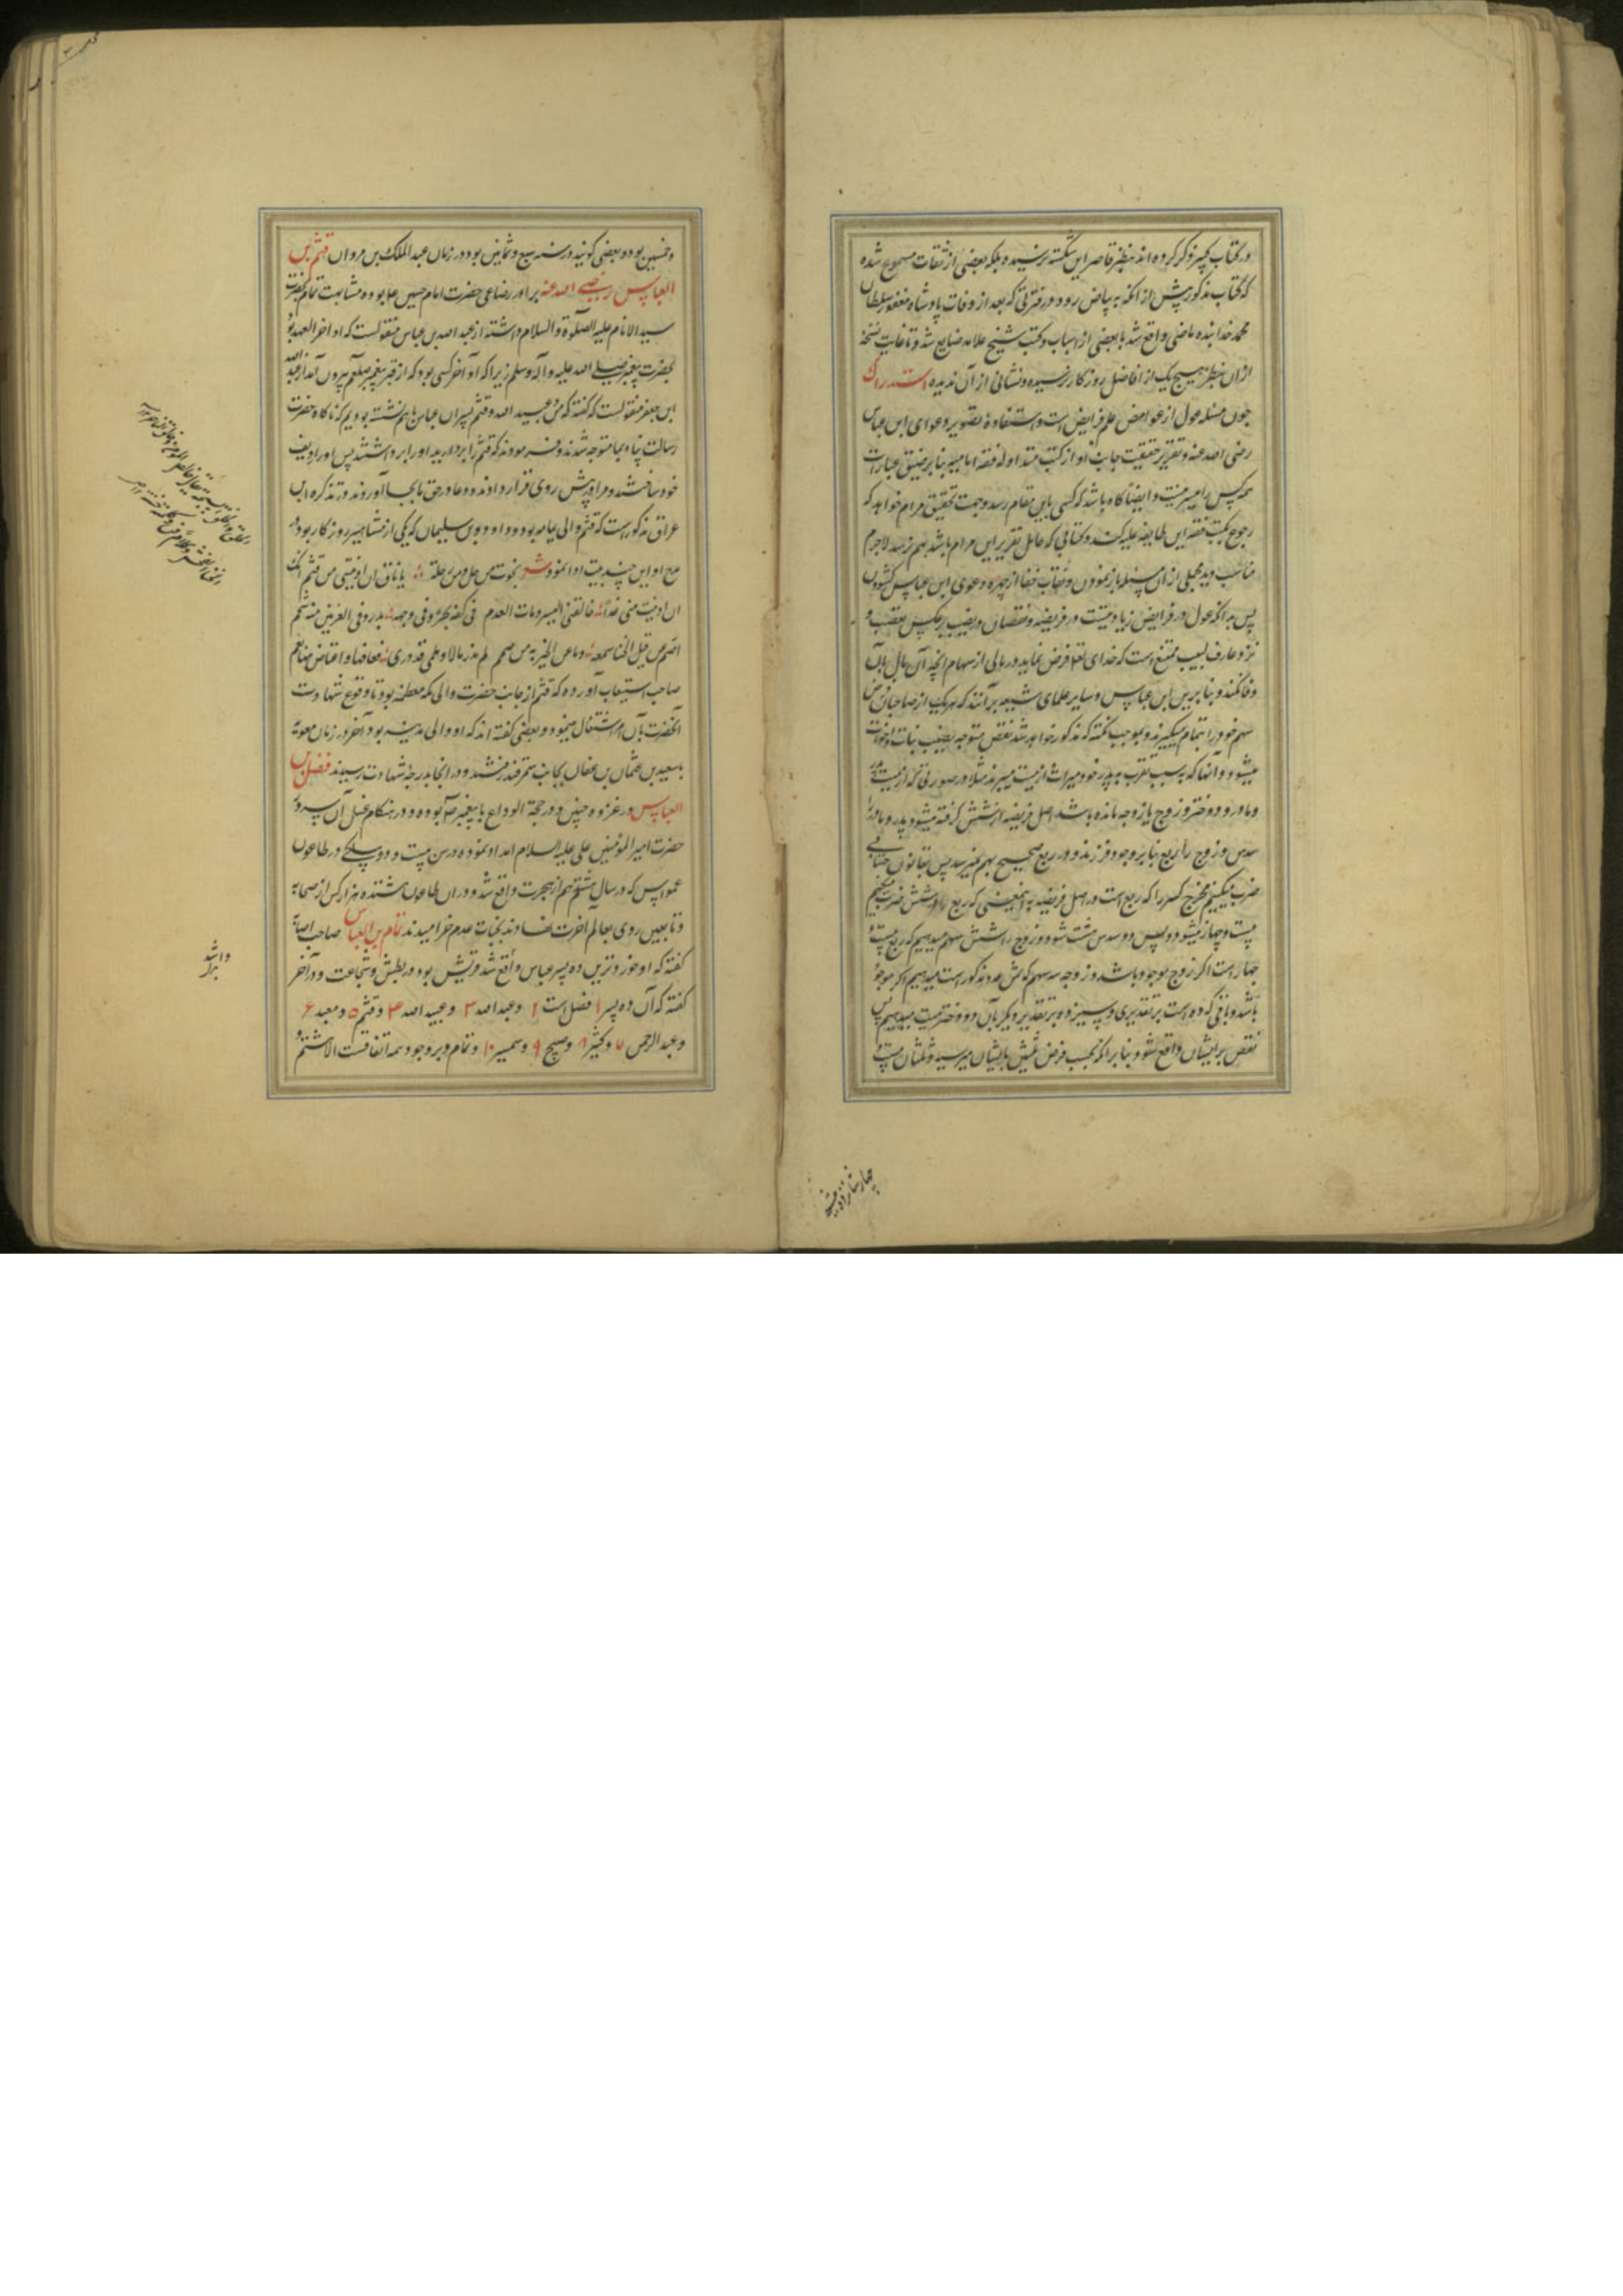 در کتاب کبیر ذکر کرده اند بنظر قاصر این شکسته نرسیده بلکه بعضی از ثقات مسموع شده
که کتاب مذکور پیش از انکه به بیاض رود در فترتی که بعد از وفات پادشاه مغفور سلطان
محمد خدابنده ماضی واقع شد با بعضی از اسباب و کتب شیخ علامه ضایع شد و تا غایت نسخهٔ
ازان بنظر هیچ یک از افاضل روزکار نرسیده و نشانی از آن ندیده استدراک
چون مسئله عول از غوامض علم فرایض است و استفادهٔ تصویر دعوای ابن عباس
رضی الله عنه و تقریر حقیقت جانب او از کتب متداوله فقه امامیه بنا بر ضیق عبارات
همه کس را میسر نیست و ایضا کاه باشد که کسی باین مقام رسد و جهت تحقیق مرام خواهد که
رجوع بکتب فقه این طایفه علیه کند و کتابی که حامل تقریر این مرام باشد بهم نرسد لاجرم
مناسب دید مجملی از ان مسئله باز نمودن و نقاب خفا از چهره دعوی ابن عباس کشودن
پس بدانکه عول در فرایض زیادتیست در فریضه و نقصان در نصیب بر عکس تعصیب و
نزد عارف لبیب ممتنع است که خدای تعالی فرض نماید در مالی از سهام انچه آن مال بآن
وفا نکند و بنا برین ابن عباس و سایر علمای شیعه بر آنند که هر یک از صاحبان فرض
سهم خود را بتمام میکیرند و بموجب نکته که مذکور خواهد شد نقص متوجه نصیب بنات و اخوات
میشود و آنها که به سبب تقرب به پدر خود میراث از میت میبرند مثلا در صورتی که از میت پدر
و مادر و دو دختر و زوج یا زوجه مانده باشد اصل فریضه از شش کرفته میشود پدر و مادر را
سدس و زوج را ربع بنا بر وجود فرزند و در ربع صحیح بهم نمیرسد پس بقانون حسابی
ضرب میکنیم مخرج کسر را که ربع است در اصل فریضه به اینمعنی که ربع را در شش ضرب میکنیم
بیست و چهار میشود و پس دو سدس هشت شود و زوج را شش سهم میدهیم که ربع بیست و
چهار است اکر زوج موجود باشد و زوجه سه سهم که ثمن عدد مذکور است میدهیم اکر موجود
باشد و باقی که ده است بر تقدیری و سیزده بر تقدیر دیکر بآن دو دختر میت میدهیم پس
نقص بر ایشان واقع شود و بنا بر انکه بحسب فرض ثلثین بایشان میرسید و ثلثان بیست و
چهار شانزده میشود
و خمسین بوده و بعضی کویند در سنه سبع و ثمانین بود در زمان عبد الملک بن مروان قثم بن
العباس رضی الله عنه برادر رضاعی حضرت امام حسین علیه بوده مشابهت تمام بحضرت
سید الانام علیه الصلوة و السلام داشته از عبد الله بن عباس منقولست که او آخر العهد بود
بحضرت پیغمبر صلی الله علیه و آله وسلم زیرا که او آخر کسی بود که از قبر پیغمبر صلعم بیرون آمد از عبد الله
ابن جعفر منقولست که کفته که من و عبید الله و قثم پسران عباس باهم نشسته بودیم که ناکاه حضرت
رسالت پناه بجا متوجه شدند و فرمودند که قثم را بردارید او را برداشتند پس او را ردیف
خود ساختند و مرا در پیش روی قرار دادند و دعا در حق ما بجا آوردند و در تذکره ابن
عراق مذکور است که قثم والی یمامه بود و داود بن سلیمان که یکی از مشاهیر روزکار بود در
مدح او این چند بیت ادا نمود شعر نجوت من حل و من رحلة یا ناق ان ادنیتنی من قثم انک
ان ادنیت منی غدا حالفنی الیسر و مات العدم فی کفه بحر و فی وجهه بدر و فی العرنین منه شمم
اصم عن قیل الخنا سمعه و ما عن الخیر به من صمم لم یدر ما لا و بلی قد دری فعافها و اعتاض منها نعم
صاحب استیعاب آورده که قثم از جانب حضرت والی مکه معظمه بود تا وقوع شهادت
آنحضرت بآن امر اشتغال مینمود و بعضی کفته اند که او والی مدینه بود آخر در زمان معویه
با سعید بن عثمان بن عفان بجانب سمرقند رفتند و در انجا بدرجه شهادت رسیدند فضل بن
العباس در غزوه حنین و در حجة الوداع با پیغمبر صلعم بوده و در هنکام غسل آن سرور
حضرت امیر المومنین علی علیه السلام امداد نموده در سن بیست و دو سالکی در طاعون
عمواس که در سال هشتم هم از هجرت واقع شد و در ان طاعون هشتده هزار کس از صحابه
و تابعین روی بعالم آخرت نهادند بجنات عدم خرامیدند تمام بن العباس صاحب اصابه
کفته که او خوردترین ده پسر عباس واقع شد و قریش بود در بطش و شجاعت و در آخر
کفته که آن ده پسر ۱ فضل است ۲ و عبد الله ۳ و عبید الله ۴ و قثم ۵ و معبد ۶
و عبد الرحمن ۷ و کثیر ۸ و صبیح ۹ و سمیر ۱۰ و تمام و بر وجود همه اتفاقست الا هشتم و